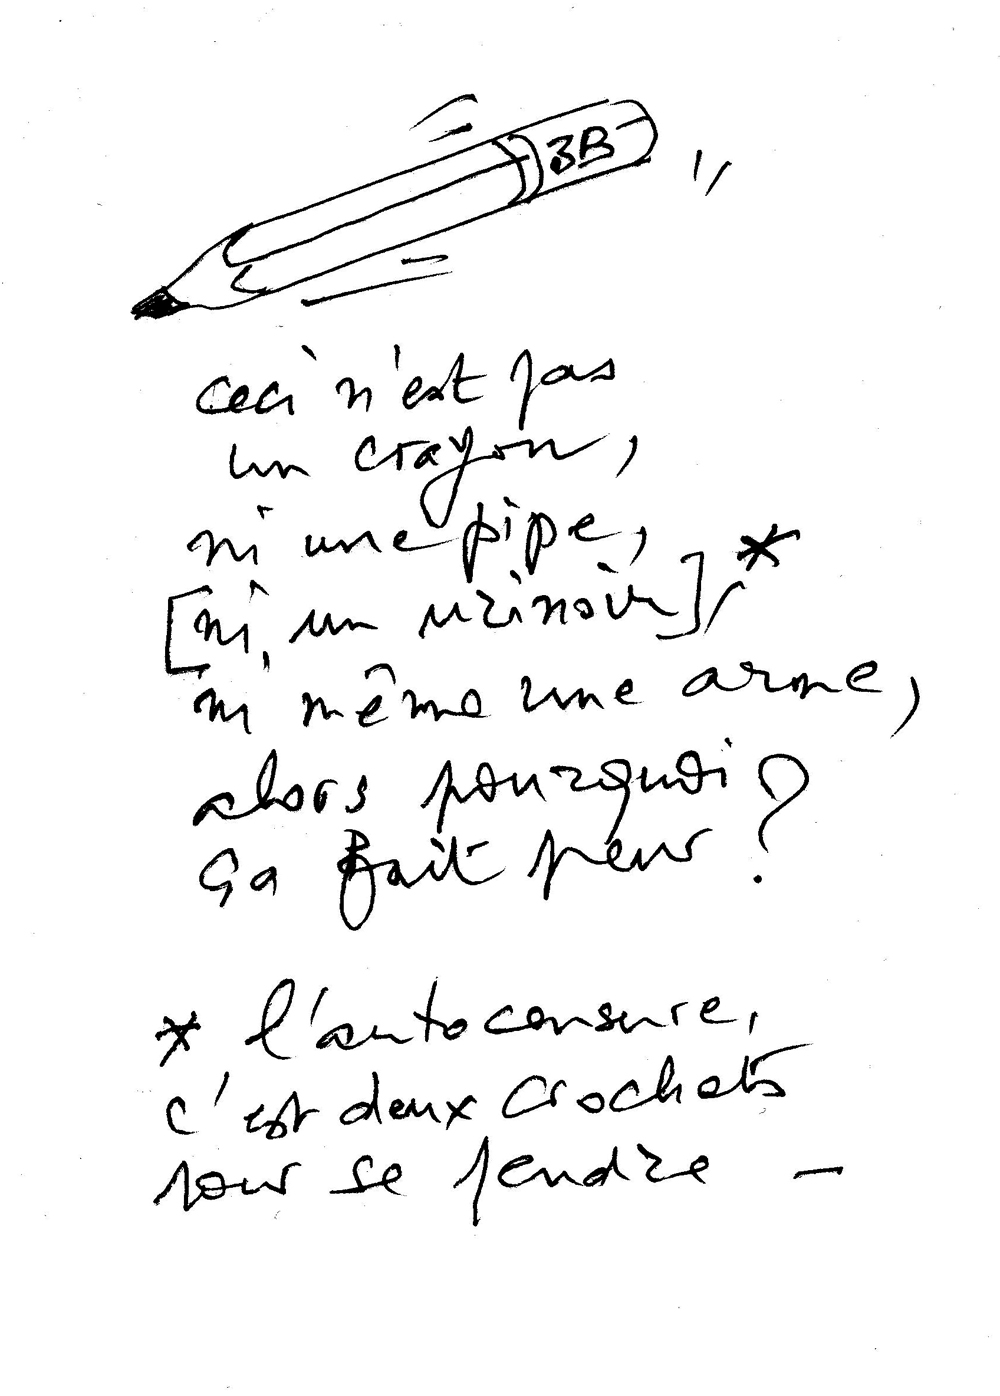 3B
ceci n'est pas
un crayon,
ni une pipe,
[ni un urinoir],*
ni même une arme,
alors pourquoi
ça fait peur ?
* l'autocensure,
c'est deux crochets
pour se pendre –